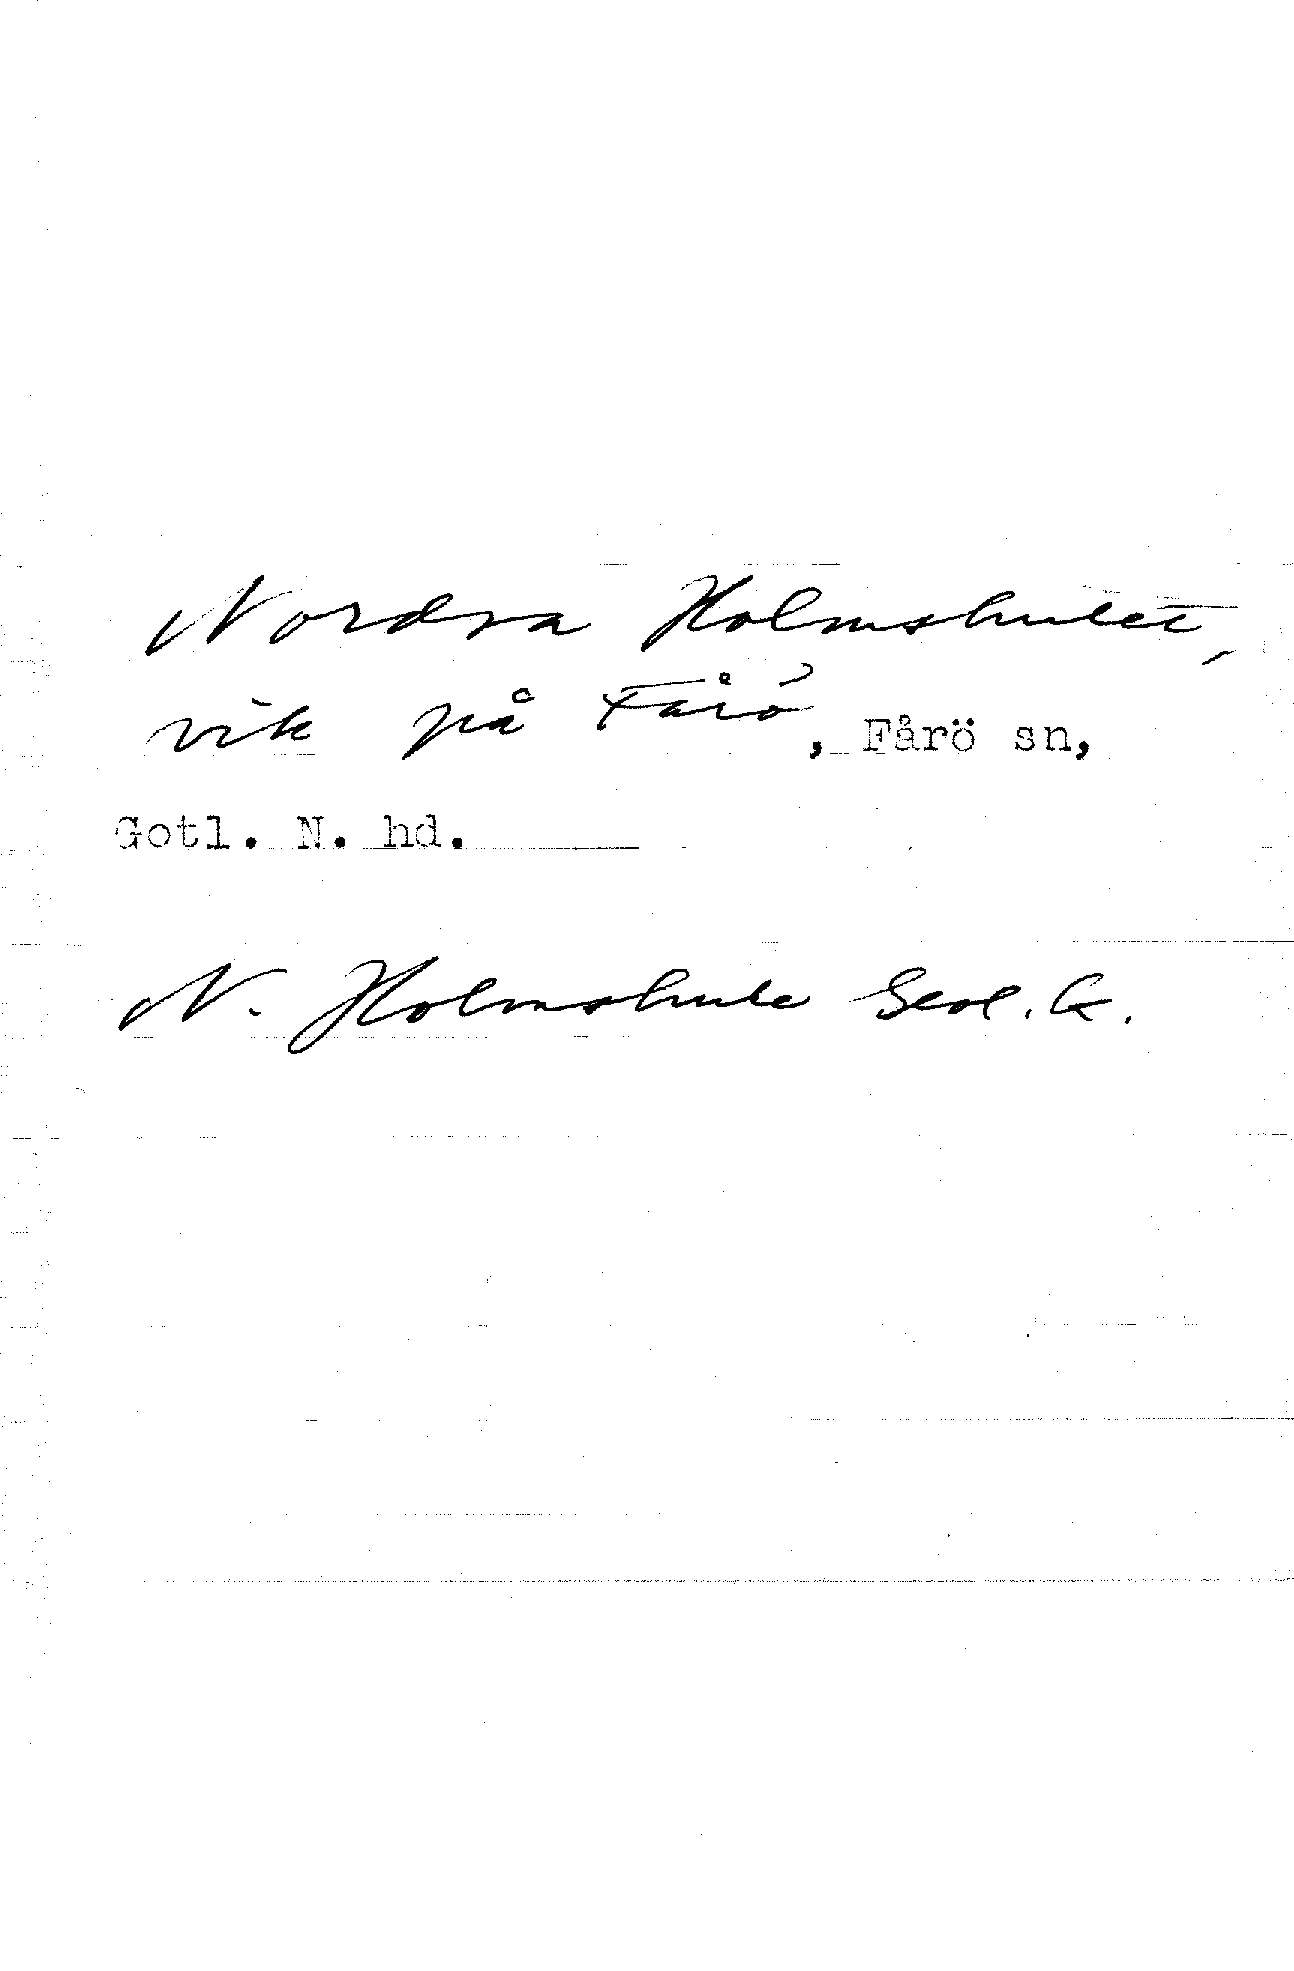 Nordra Holmshulet,
vik på Fårö, Fårö sn,
Gotl. N. hd.
N. Holmshule Geol. k.